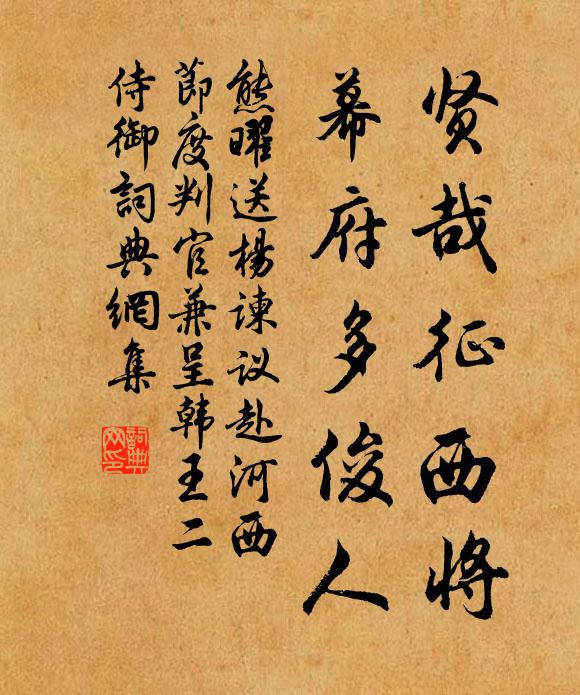 贤哉征西將
幕府多俊人
熊曜送楊諫议赴河西
節度判官兼呈韩王二
侍御詞典網集
詞典
网印